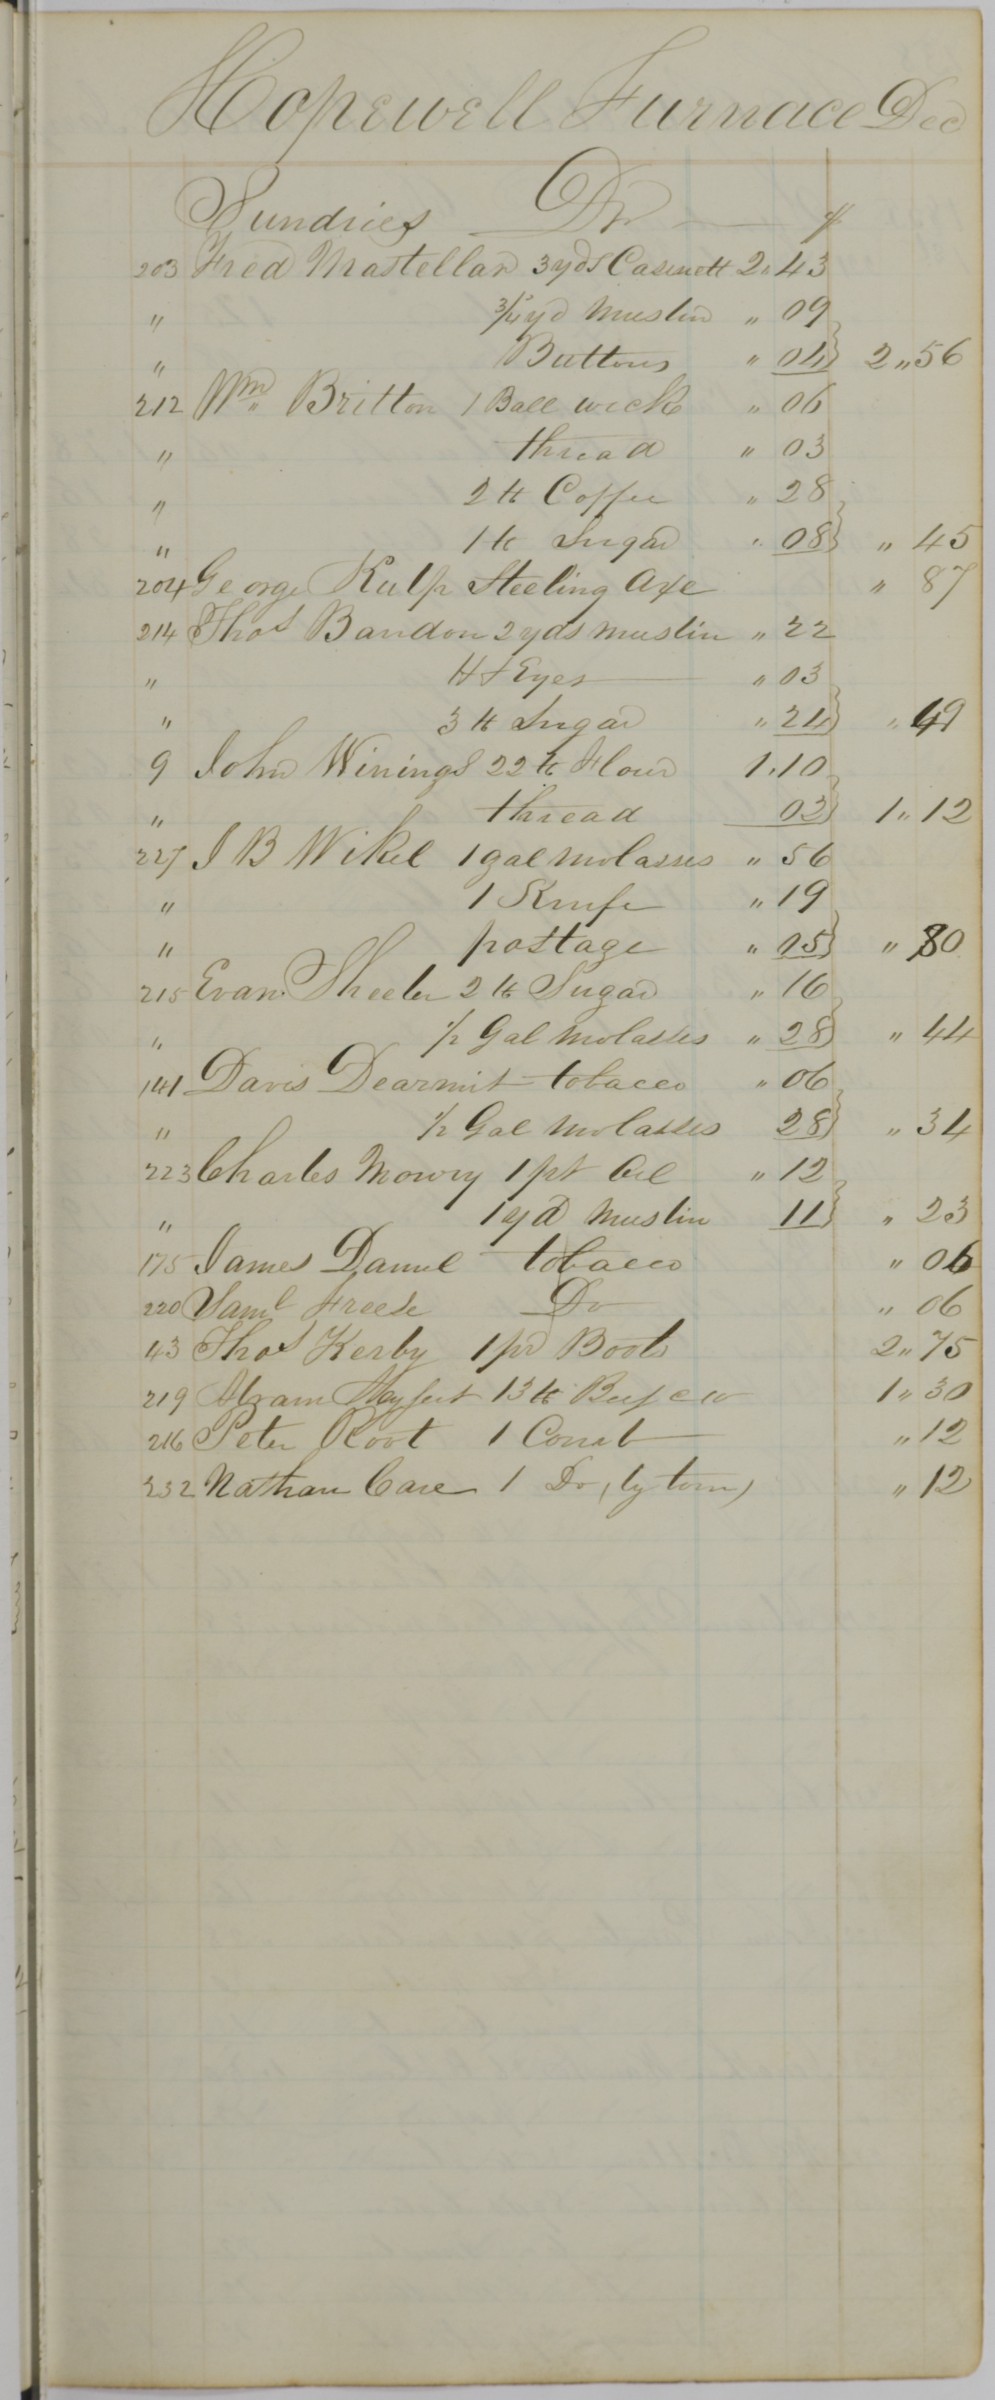 Hopewell Furnace Dec
Sundries Dr
203 Fred Mastellar 3 yds Casinett 2"43
" 3/4 yd Muslin " 09
" Buttons " 04 2"56
212 Wm Britton 1 Ball wick " 06
" thread " 03
" 2 lb Coffee " 28
" 1 lb Sugar " 08 " 45
204 George Kulp Steeling Axe " 87
214 Thos Bandon 2 yds muslin " 22
" H & Eyes " 03
" 3 lb Sugar " 24 " 49
9 John Winings 22 lb Flour 1.10
" thread 02 1"12
227 J B Wikel 1 gal molasses " 56
" 1 Knife " 19
" postage " 05 " 80
215 Evan Sheeler 2 lb Sugar " 16
" 1/2 Gal Molasses " 28 " 44
141 Davis Dearmit tobacco " 06
" 1/2 Gal Molasses 28 " 34
223 Charles Mowry 1 pt Oil " 12
" 1 yd Muslin 11 " 23
175 James Daniel tobacco " 06
220 Saml Freese Do " 06
43 Thos Kerby 1 pr Boots 2"75
219 Abram 13 lb Beef 1"30
216 Peter Root 1 " 12
232 Nathan Care 1 Do, by tom) " 12